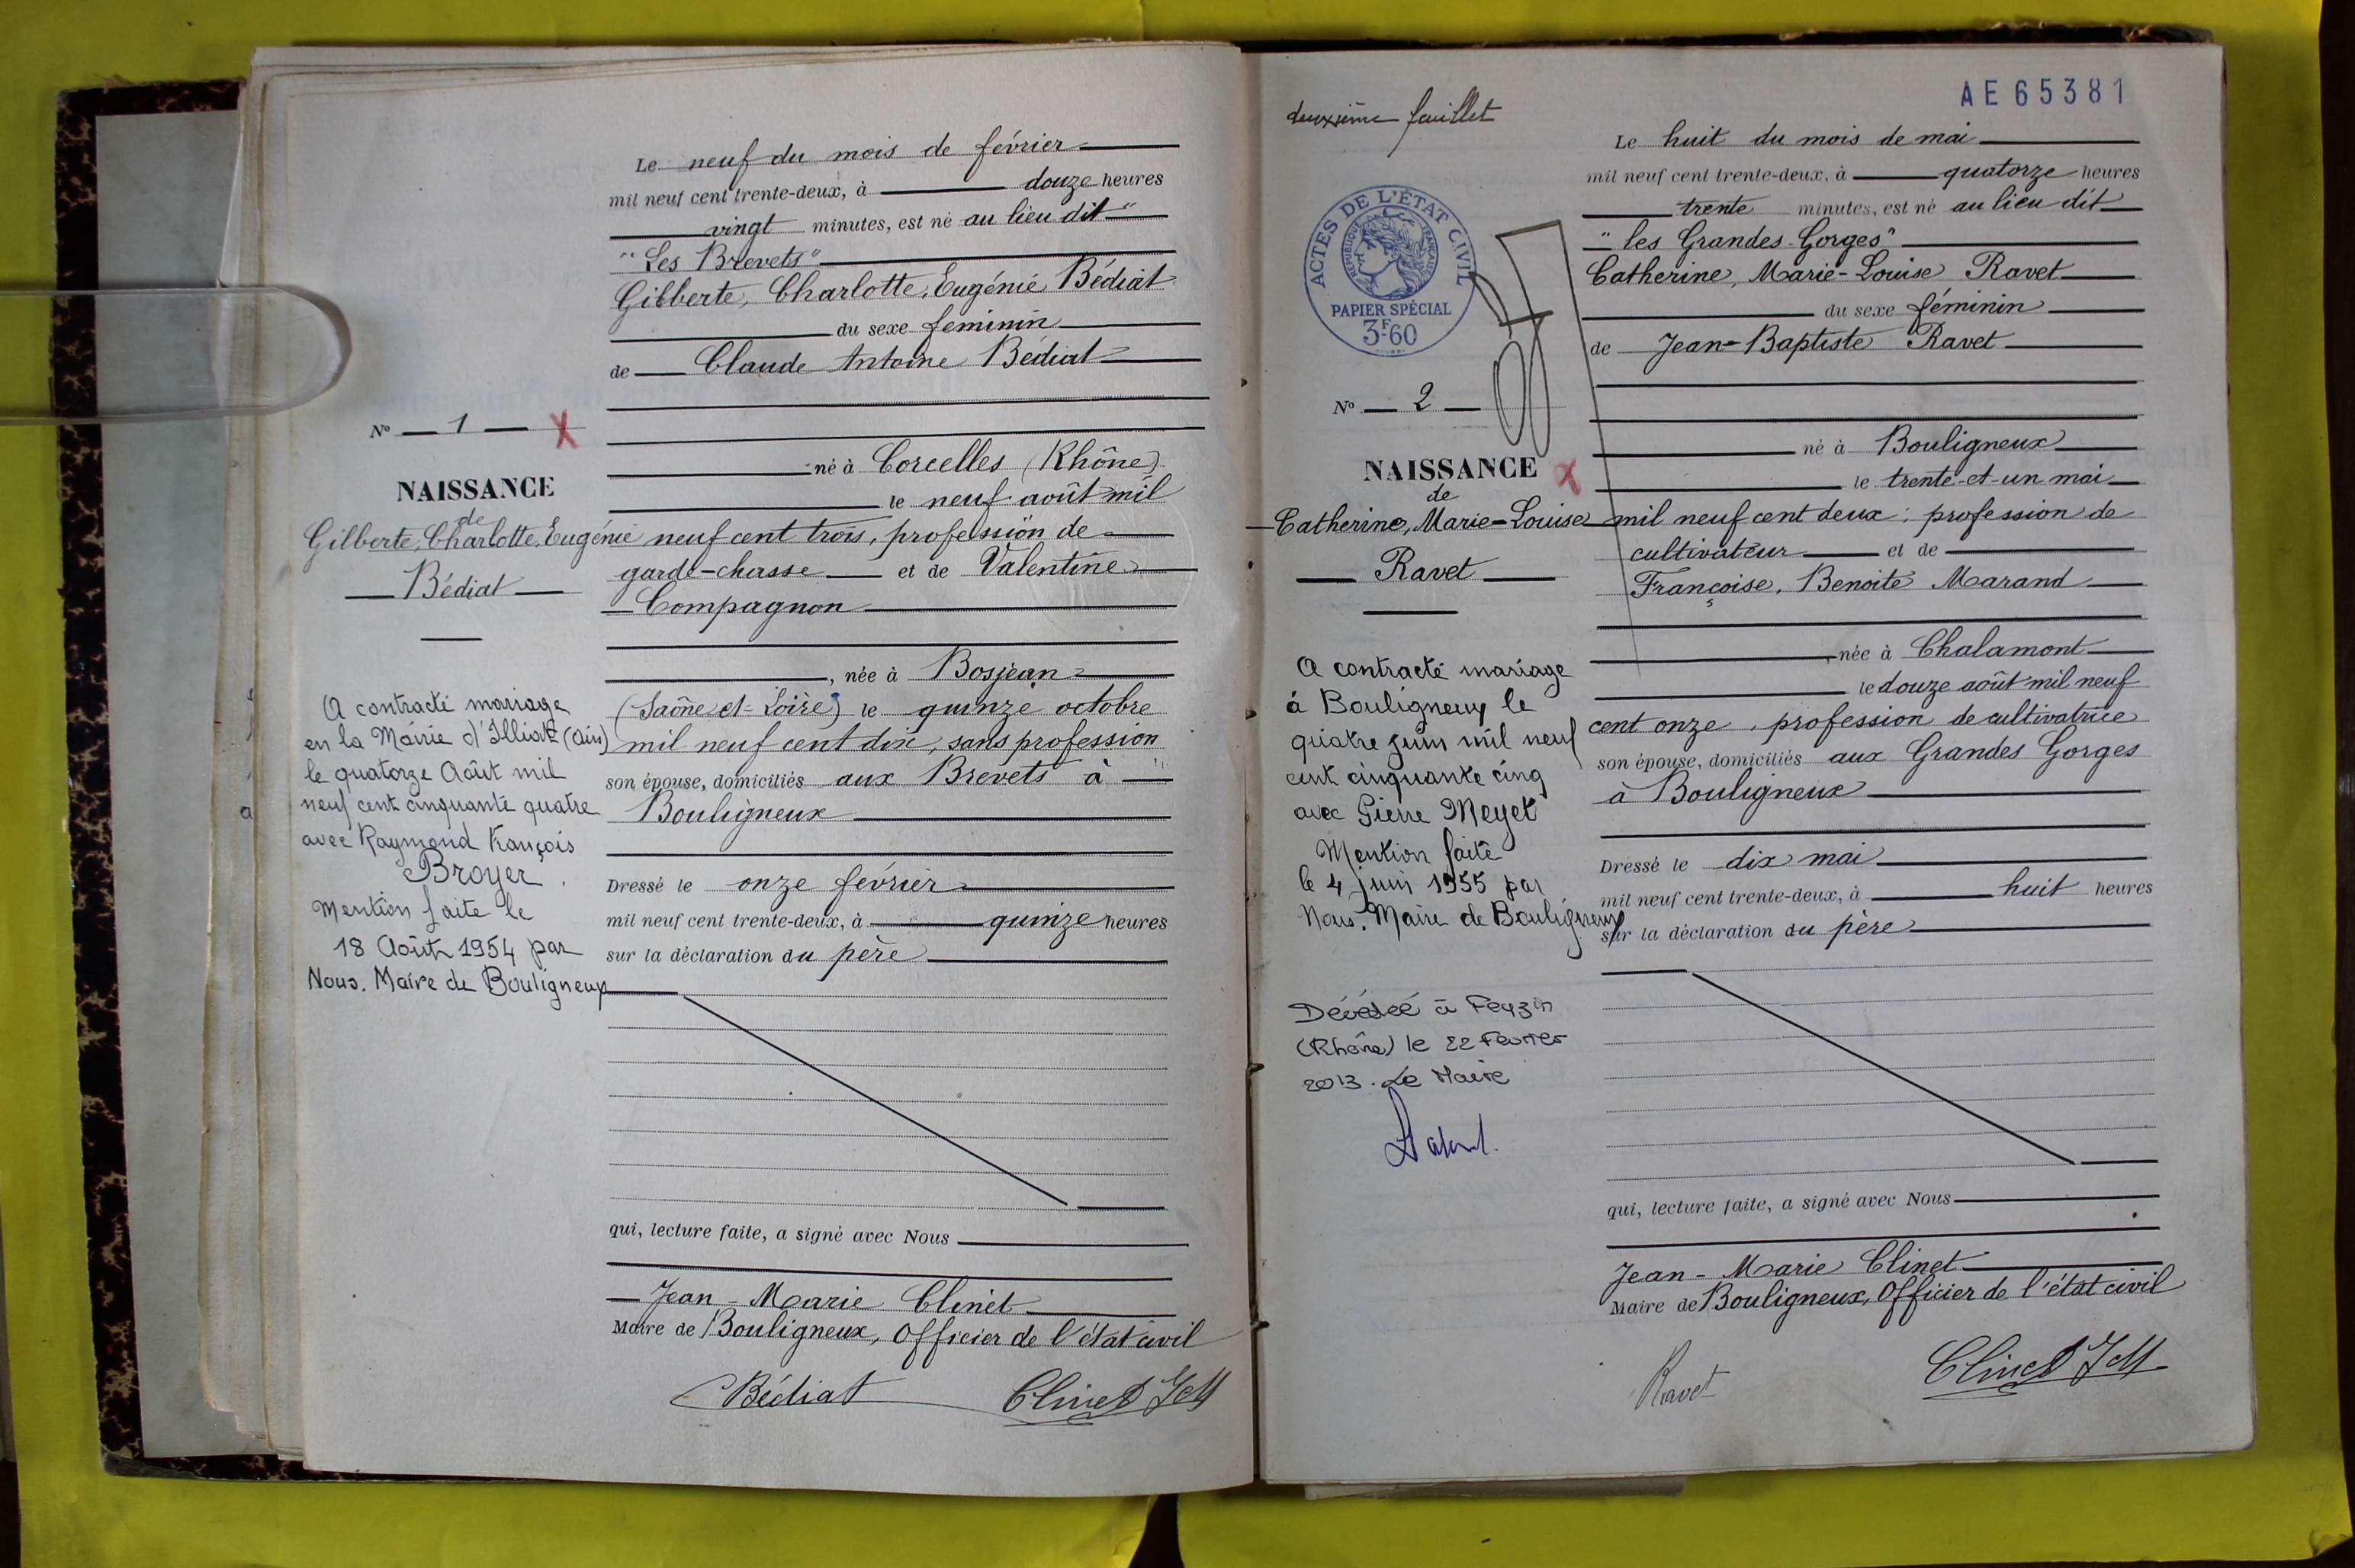 Le neuf du mois de février
mil neuf cent trente-deux, à douze heures
vingt minutes, est né au lieu dit "
"Les Brevets"
Gilberte, Charlotte, Eugénie Bédiat
du sexe féminin
de Claude Antoine Bédiat
né à Corcelles (Rhône)
le neuf août mil
neuf cent trois, profession de
garde-chasse et de Valentine
Compagnon
, née à Bosjean
(Saône et-Loire) le quinze octobre
mil neuf cent dix, sans profession
son épouse, domiciliés aux Brevets à
Bouligneux
Dressé le onze février
mil neuf cent trente-deux, à quinze heures
sur la déclaration du père
qui, lecture faite, a signé avec Nous
Jean-Marie Clinet
Maire de Bouligneux, Officier de l'état civil
Bédiat Clinet JM
No 1 X
NAISSANCE
de
Gilberte, Charlotte, Eugénie
Bédiat
A contracté mariage
en la Mairie d'Illiat (Ain)
le quatorze Août mil
neuf cent cinquante quatre
avec Raymond François
Broyer.
Mention faite le
18 Août 1954 par
Nous. Maire de Bouligneux
deuxième feuillet
AE65381
ACTES DE L'ÉTAT CIVIL
RÉPUBLIQUE FRANÇAISE
PAPIER SPÉCIAL
3F60
No 2
NAISSANCE X
de
Catherine, Marie-Louise
Ravet
A contracté mariage
à Bouligneux le
quatre juin mil neuf
cent cinquante cinq
avec Pierre Meyet
Mention faite
le 4 juin 1955 par
Nous. Maire de Bouligneux
Décédée à Feyzin
(Rhône) le 22 Février
2013. Le Maire
Le huit du mois de mai
mil neuf cent trente-deux, à quatorze heures
trente minutes, est né au lieu dit
"les Grandes-Gorges"
Catherine, Marie-Louise Ravet
du sexe féminin
de Jean-Baptiste Ravet
né à Bouligneux
le trente-et-un mai
mil neuf cent deux, profession de
cultivateur et de
Françoise, Benoite Marand
, née à Chalamont
le douze août mil neuf
cent onze, profession de cultivatrice
son épouse, domiciliés aux Grandes Gorges
à Bouligneux
Dressé le dix mai
mil neuf cent trente-deux, à huit heures
sur la déclaration du père
qui, lecture faite, a signé avec Nous
Jean-Marie Clinet
Maire de Bouligneux, Officier de l'état civil
Ravet Clinet JM